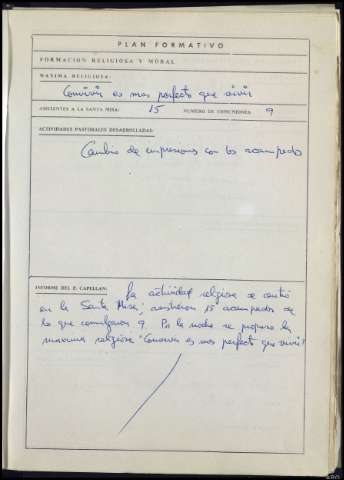 PLAN FORMATIVO
FORMACION RELIGIOSA Y MORAL
MAXIMA RELIGIOSA:
Convivir es mas perfecto que vivir
ASISTENTES A LA SANTA MISA: 15 NUMERO DE COMUNIONES: 9
ACTIVIDADES PASTORALES DESARROLLADAS:
Cambio de impresiones con los acampados
INFORME DEL P. CAPELLAN: La actividad religiosa se centró
en la Santa Misa; asistieron 15 acampados de
lo que comulgaron 9. Por la noche se propuso la
maxima religiosa "Convivir es mas perfecto que vivir"